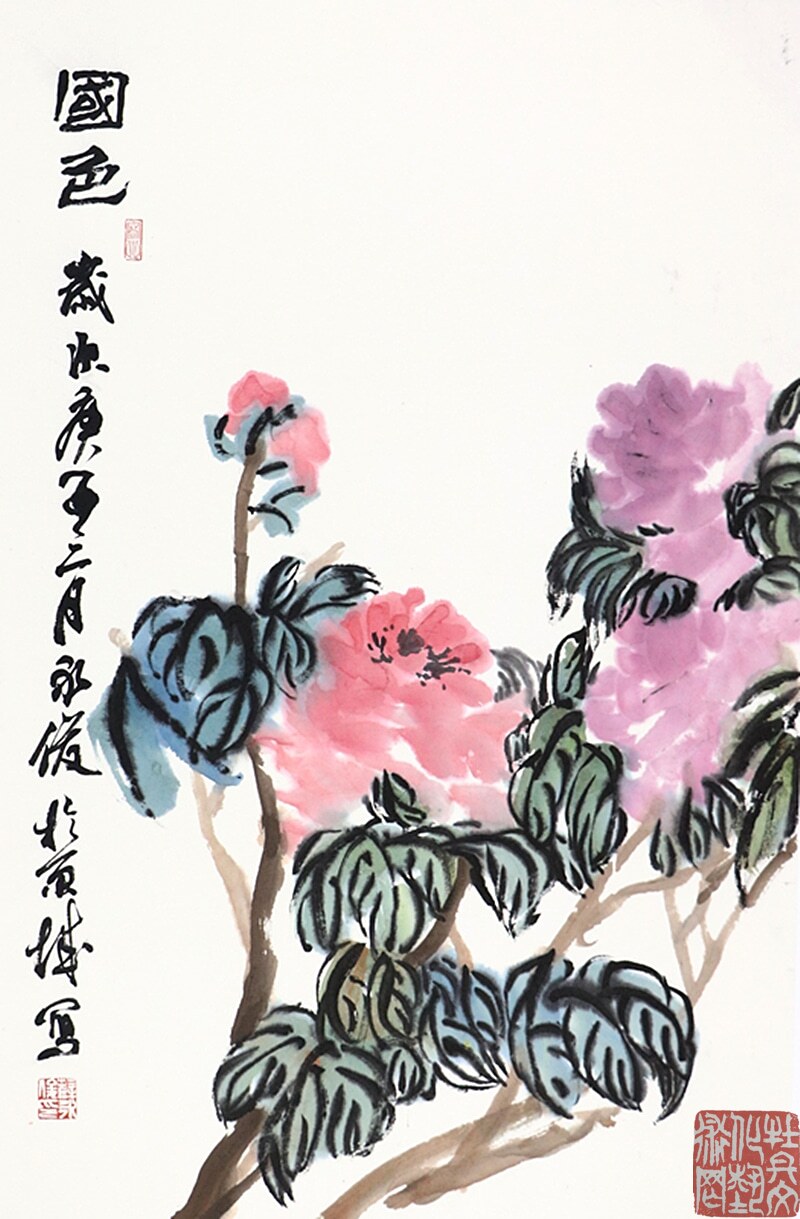 國色
歲次庚子三月永俊於京城寫